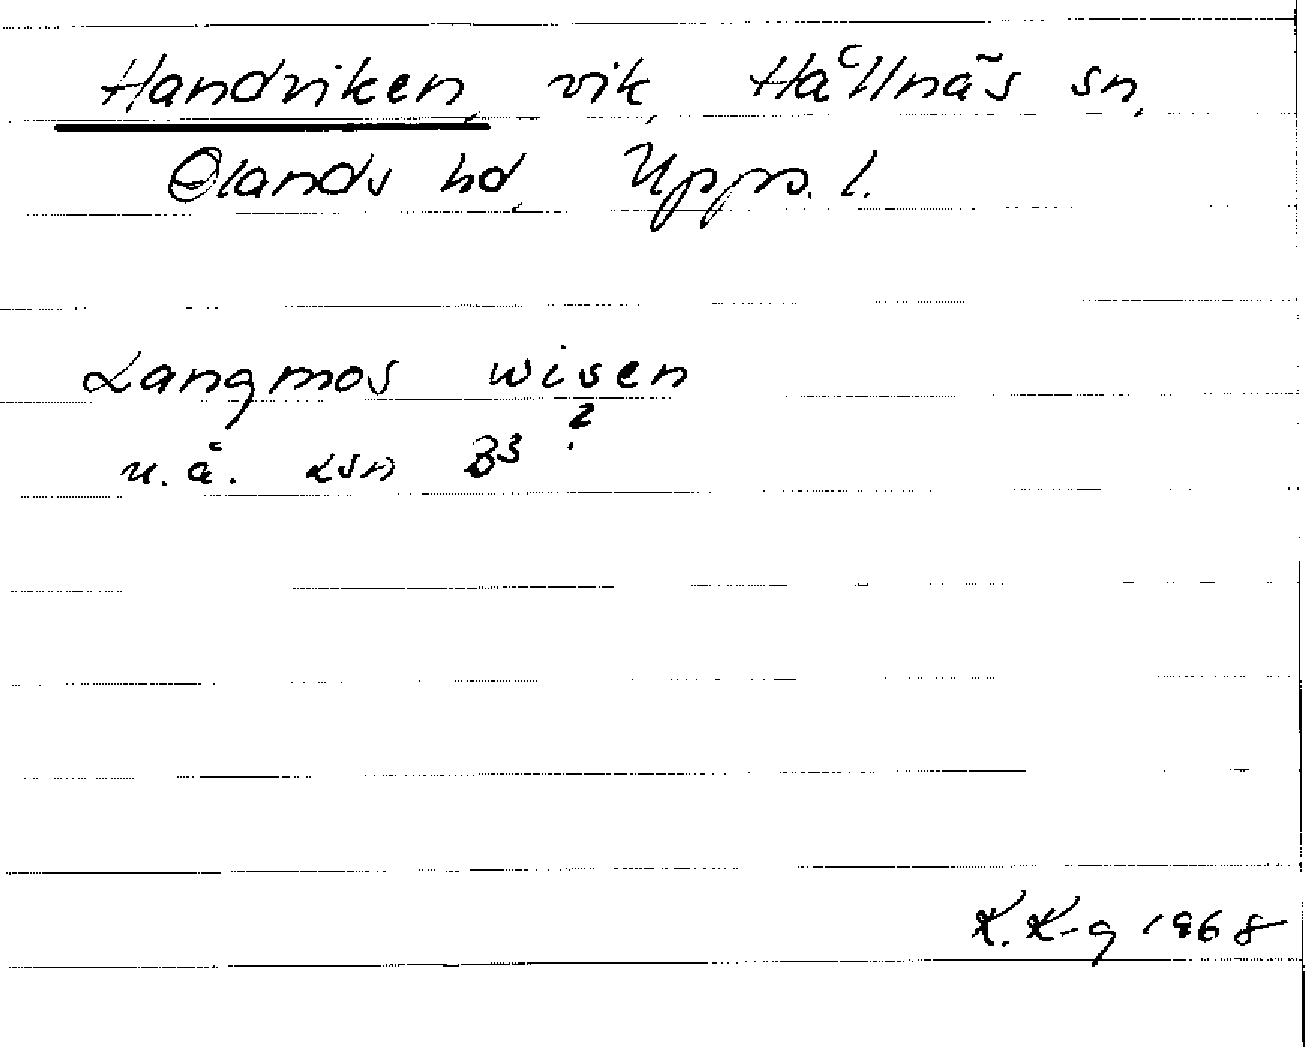 Handviken, vik, Hållnäs sn,
Olands hd, Upps. l.
Langmos wisen
u.å. LSA B3 ?
K. K-g 1968